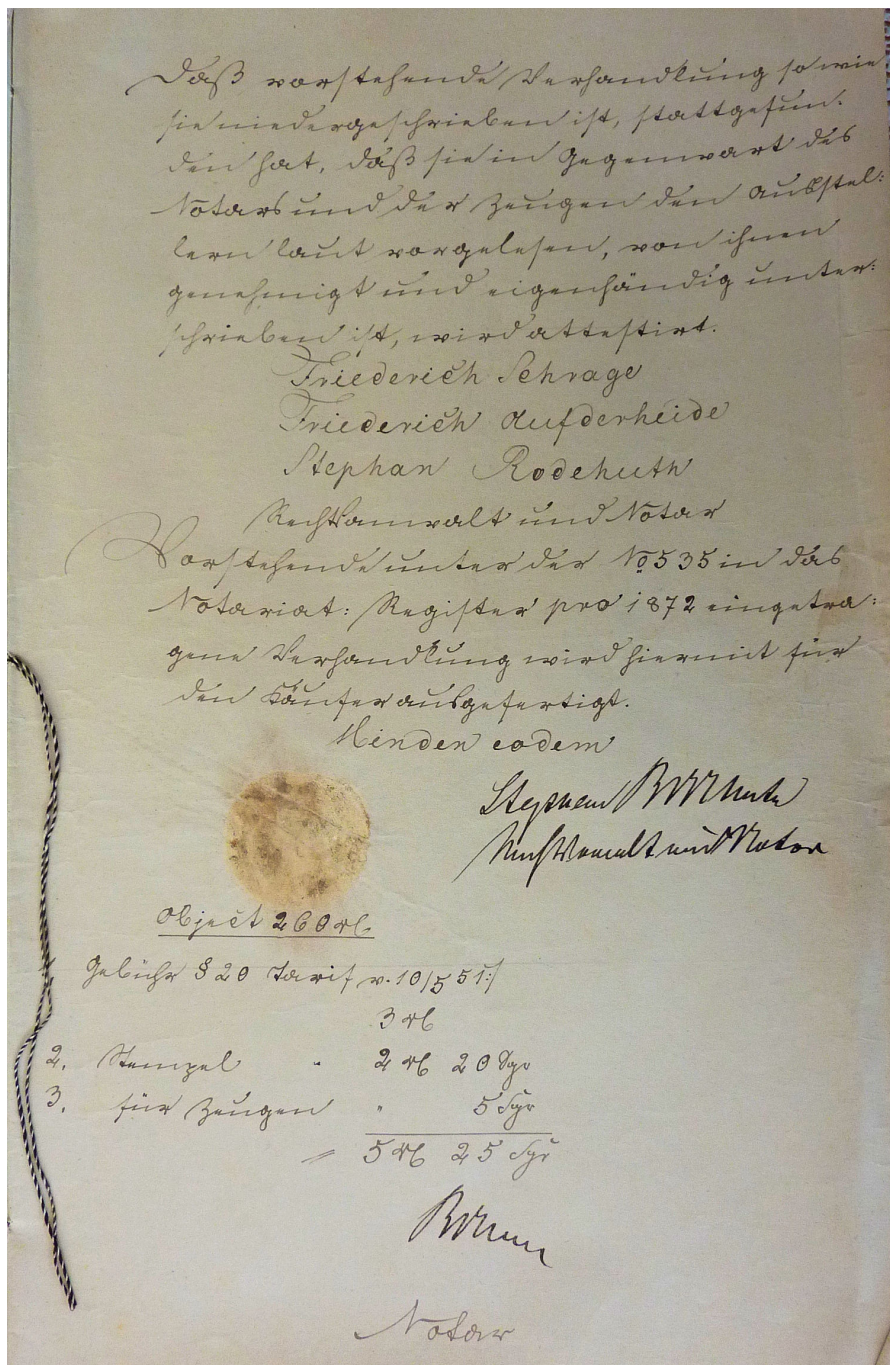 Daß vorstehende Verhandlung so wie
sie niedergeschrieben ist, stattgefun-
den hat, daß sie in Gegenwart des
Notars und der Zeugen den Ausstel:
lern laut vorgelesen, von ihnen
genehmigt und eigenhändig unter:
schrieben ist, wird attestirt.
Friederich Schrage
Friederich Aufderheide
Stephan Rodehuth
Rechtsanwalt und Notar
Vorstehende unter der No 535 in das
Notariat: Register pro 1872 eingetra:
gene Verhandlung wird hiermit für
den Käufer ausgefertigt.
Minden eodem
Stephan Rodehuth
Rechtsanwalt und Notar
Object 260 rtl.
1. Gebühr § 20 Tarif v. 10/5 51:/
3 rtl
2. Stempel " 2 rtl 20 Sgr
3. für Zeugen " 5 Sgr
= 5 rtl 25 Sgr
Notar